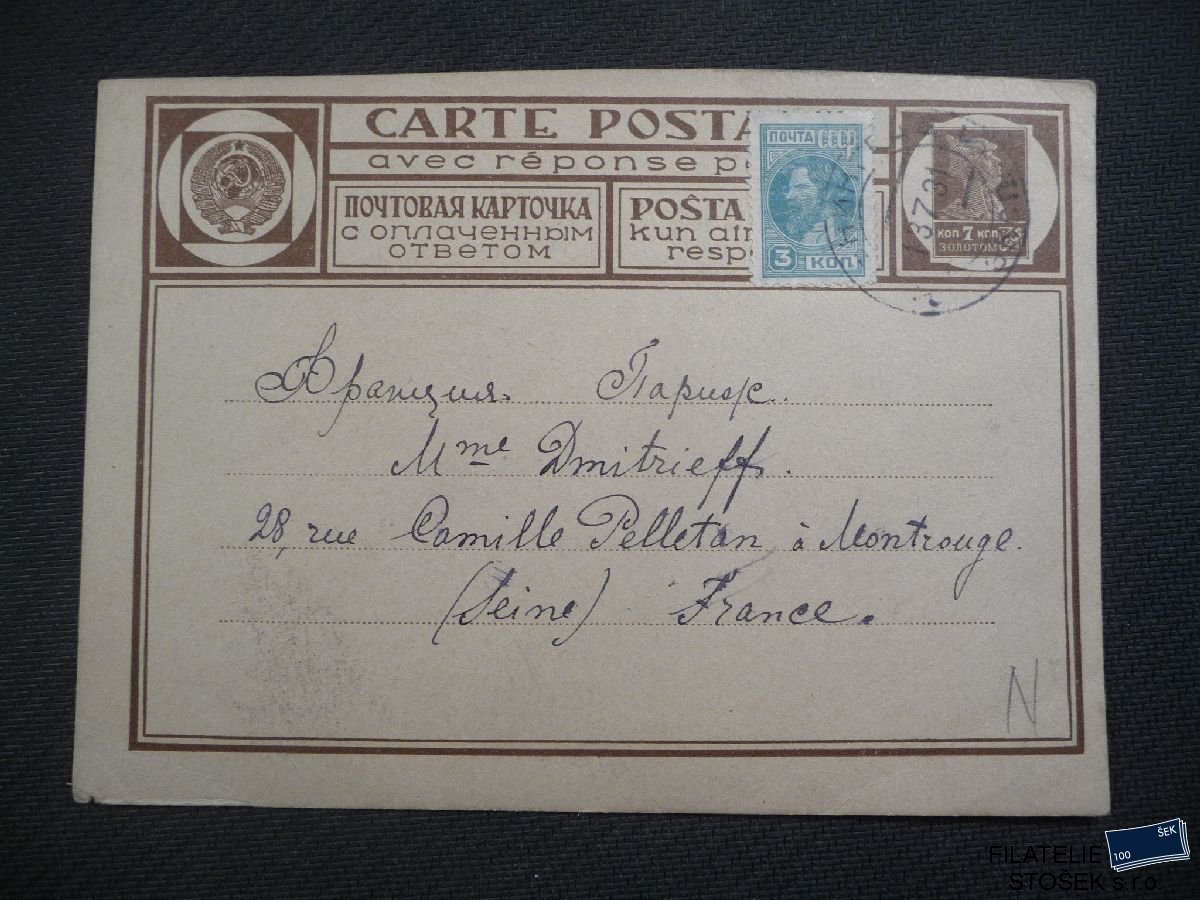 CARTE POSTA
avec réponse p
ПОЧТОВАЯ КАРТОЧКА
с оплаченным
ответом
POŜTA
kun
resp
ПОЧТА СССР
3 КОП.
КОП 7 КОП
ЗОЛОТОМ
3731
Франция. Париж.
Mme Dmitrieff.
28, rue Camille Pelletan à Montrouge.
(Seine) France.
N
100 ŠEK
FILATELIE
STOŠEK s.r.o.